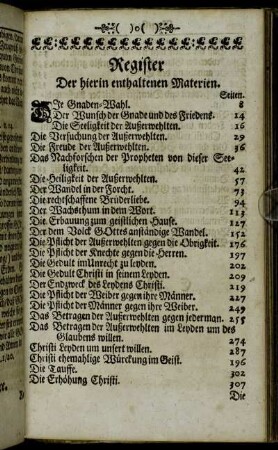 )o(
Register
Der hierin enthaltenen Materien.
Seiten.
Die Gnaden-Wahl. 8
Der Wunsch der Gnade und des Friedens. 14
Die Seeligkeit der Außerwehlten. 16
Die Versuchung der Außerwehlten. 29
Die Freude der Außerwehlten. 36
Das Nachforschen der Propheten von dieser See-
ligkeit. 42
Die Heiligkeit der Außerwehlten. 57
Der Wandel in der Forcht. 73
Die rechtschaffene Brüderliebe. 94
Der Wachsthum in dem Wort. 113
Die Erbauung zum geistlichen Hause. 127
Der dem Volck GOttes anständige Wandel. 152
Die Pflicht der Außerwehlten gegen die Obrigkeit. 176
Die Pflicht der Knechte gegen die Herren. 197
Die Gedult im Unrecht zu leyden. 202
Die Gedult Christi in seinem Leyden. 209
Der Endzweck des Leydens Christi. 219
Die Pflicht der Weiber gegen ihre Männer. 227
Die Pflicht der Männer gegen ihre Weiber. 249
Das Betragen der Außerwehlten gegen jederman. 255
Das Betragen der Außerwehlten im Leyden um des
Glaubens willen. 274
Christi Leyden um unsert willen. 287
Christi ehemahlige Würckung im Geist. 196
Die Tauffe. 302
Die Erhöhung Christi. 307
Die